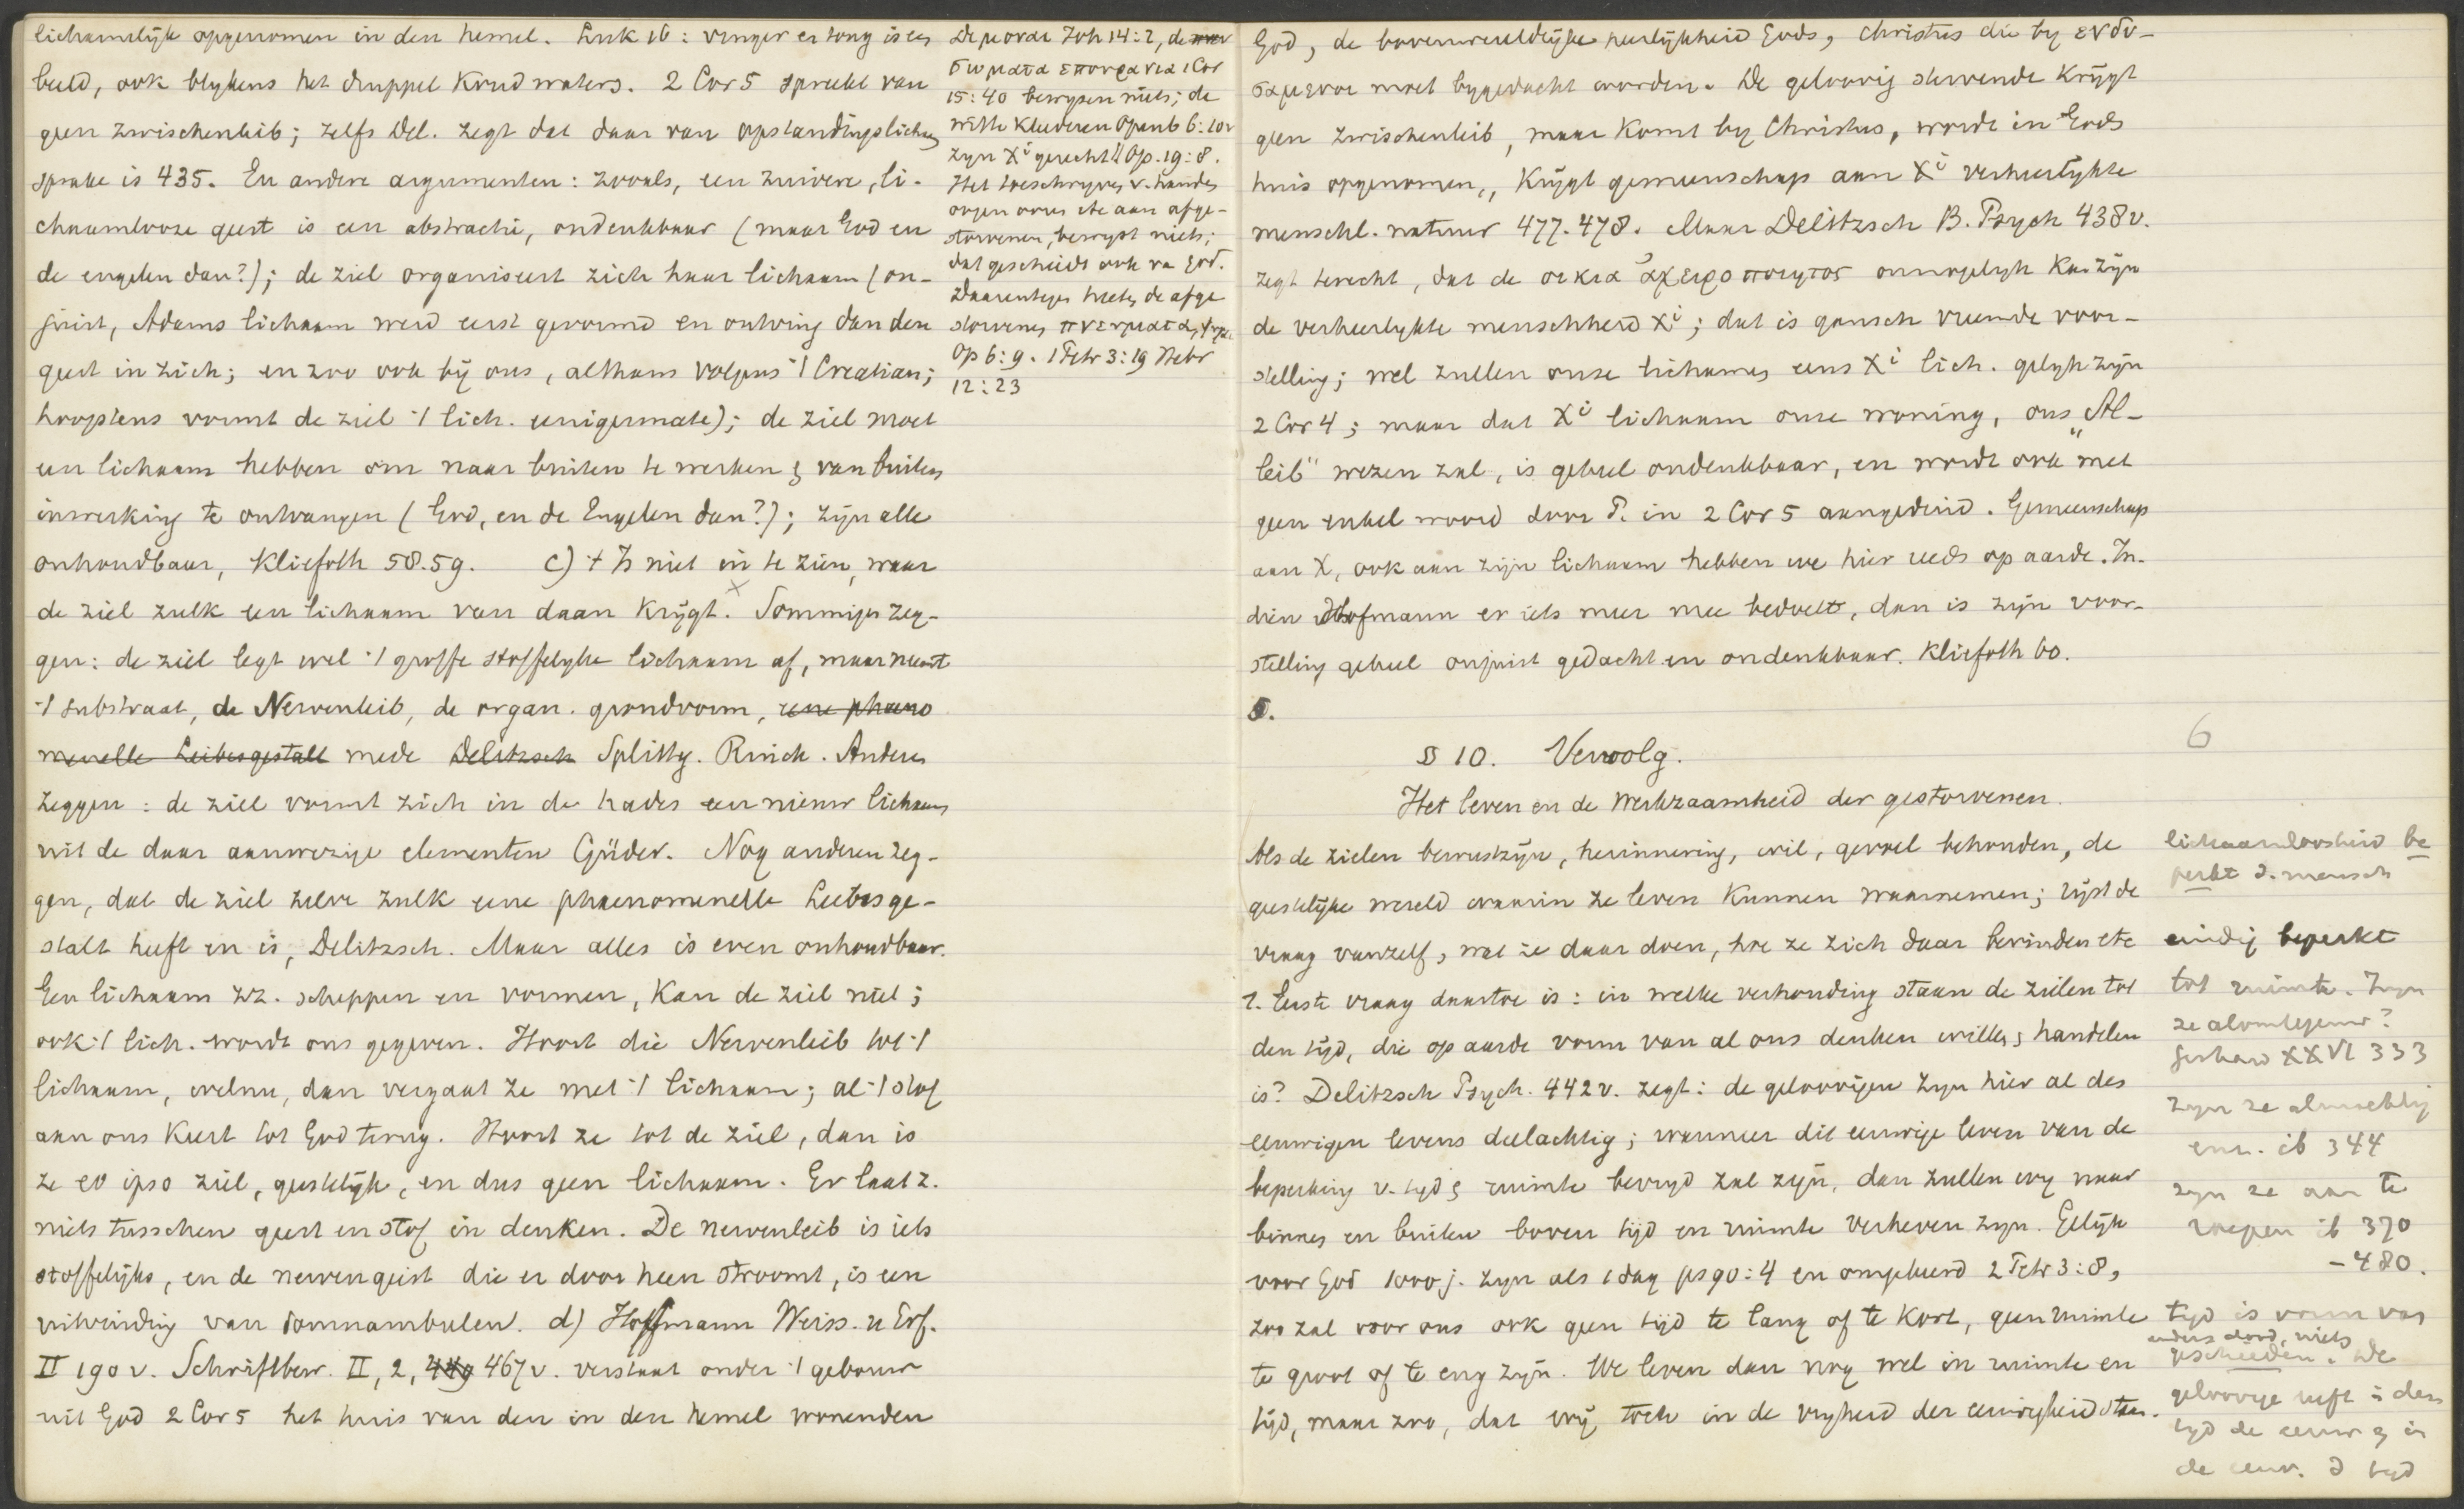 lichamelijk opgenomen in den hemel. Luk 16: vinger en tong is een
beeld, ook blykens het druppel koud waters. 2 Cor 5 spreekt van
geen Zwischenleib; zelfs Del. zegt dat daar van opstandingslichaam
sprake is 435. En andere argumenten: zooals, een zuivere, li-
chaamlooze geest is een abstractie, ondenkbaar (maar God en
de engelen dan?); de ziel organiseert zich haar lichaam (on-
juist, Adams lichaam werd eerst gevormd en ontving dan den
geest in zich; en zoo ook bij ons, althans volgens 't Creatian;
hoogstens vormt de ziel 't lich. eenigermate); de ziel moet
een lichaam hebben om naar buiten te werken & van buiten
inwerking te ontvangen (God, en de Engelen dan?); zijn alle
onhoudbaar, Kliefoth 58.59. c) 't Is niet in te zien, waar
de ziel zulk een lichaam van daan krijgt. Sommigen zeg-
gen: de ziel legt wel 't groffe stoffelyke lichaam af, maar neemt
't substraat, de Nervenleib, de organ. grondvorm, eene phaeno
menelle Leibesgestalt mede Delitzsch Splittg. Rinck. Anderen
zeggen: de ziel vormt zich in de hades een nieuw lichaam
uit de daar aanwezige elementen Güder. Nog anderen zeg-
gen, dat de ziel zelve zulk eene phaenomenelle Leibesge-
stalt heeft en is, Delitzsch. Maar alles is even onhoudbaar.
Een lichaam zz. scheppen en vormen, kan de ziel niet;
ook 't lich. wordt ons gegeven. Hoort die Nervenleib tot 't
lichaam, welnu, dan vergaat ze met 't lichaam; al 't stof
aan ons keert tot God terug. Hoort ze tot de ziel, dan is
ze eo ipso ziel, geestelijk, en dus geen lichaam. Er laat z.
niets tusschen geest en stof in denken. De nervenleib is iets
stoffelijks, en de nervengeist die er door heen stroomt, is een
uitvinding van somnambulen. d) Hoffmann Weiss. u Erf.
II 190 v. Schriftbew. II, 2, 449 467 v. verstaat onder 't gebouw
uit God 2 Cor 5 het huis van den in den hemel wonenden
De μοναι Joh 14:2, de
σωματα επουρανια 1 Cor
15:40 bewyzen niets; de
witte kleederen Openb 6:10v
zyn Xi gerecht. Op. 19:8.
Het toeschryven v. handen
oogen ooren etc aan afge-
storvenen, bewyst niets;
dat geschiedt ook van God.
Daarentegen heeten de afge
storvenen πνευματα,
Op 6:9. 1 Petr 3:19 Hebr
12:23
God, de bovenwereldlijke heerlijkheid Gods, Christus die by ενδυ-
σαμενοι moet bygedacht worden. De geloovig stervende krijgt
geen Zwischenleib, maar komt by Christus, wordt in Gods
huis opgenomen, krijgt gemeenschap aan Xi verheerlykte
menschl. natuur 477.478. Maar Delitzsch B. Psych 438v.
zegt terecht, dat de οικια αχειροποιητος onmogelyk kan zijn
de verheerlykte menschheid Xi; dat is gansch vreemde voor-
stelling; wel zullen onze lichamen eens Xi lich. gelyk zijn
2 Cor 4; maar dat Xi lichaam onze woning, ons „Al-
leib" wezen zal, is geheel ondenkbaar, en wordt ook met
geen enkel woord door P. in 2 Cor 5 aangeduid. Gemeenschap
aan X, ook aan zijn lichaam hebben we hier reeds op aarde. In-
dien Hofmann er iets meer mee bedoelt, dan is zijn voor-
stelling geheel onjuist gedacht en ondenkbaar. Kliefoth 60.
5.
§ 10. Vervolg.
Het leven en de werkzaamheid der gestorvenen.
Als de zielen bewustzijn, herinnering, wil, gevoel behouden, de
geestelijke wereld waarin ze leven kunnen waarnemen; rijst de
vraag vanzelf, wat ze daar doen, hoe ze zich daar bevinden etc
1. Eerste vraag daartoe is: in welke verhouding staan de zielen tot
den tijd, die op aarde vorm van al ons denken willen & handelen
is? Delitzsch Psych. 442 v. zegt: de geloovigen zyn hier al des
eeuwigen levens deelachtig; wanneer dit eeuwige leven van de
beperking v. tyd & ruimte bevryd zal zijn, dan zullen wy naar
binnen en buiten boven tijd en ruimte verheven zyn. Gelijk
voor God 1000 j. zyn als 1 dag ps 90:4 en omgekeerd 2 Petr 3:8,
zoo zal voor ons ook geen tijd te lang of te kort, geen ruimte
te groot of te eng zijn. We leven dan nog wel in ruimte en
tijd, maar zoo, dat wij toch in de vryheid der eeuwigheid staan.
6
lichaamloosheid be
perkt d. mensch
eindig beperkt
tot ruimte. Zyn
ze alomtegenw?
Gerhard XXVI 333
zyn ze almachtig
enz. ib 344
zyn ze aan te
roepen ib 370
-480.
tyd is vorm van
anders dood, niets
gescheiden. De
geloovige leeft in den
tyd de eeuw & in
de eeuw. d tyd